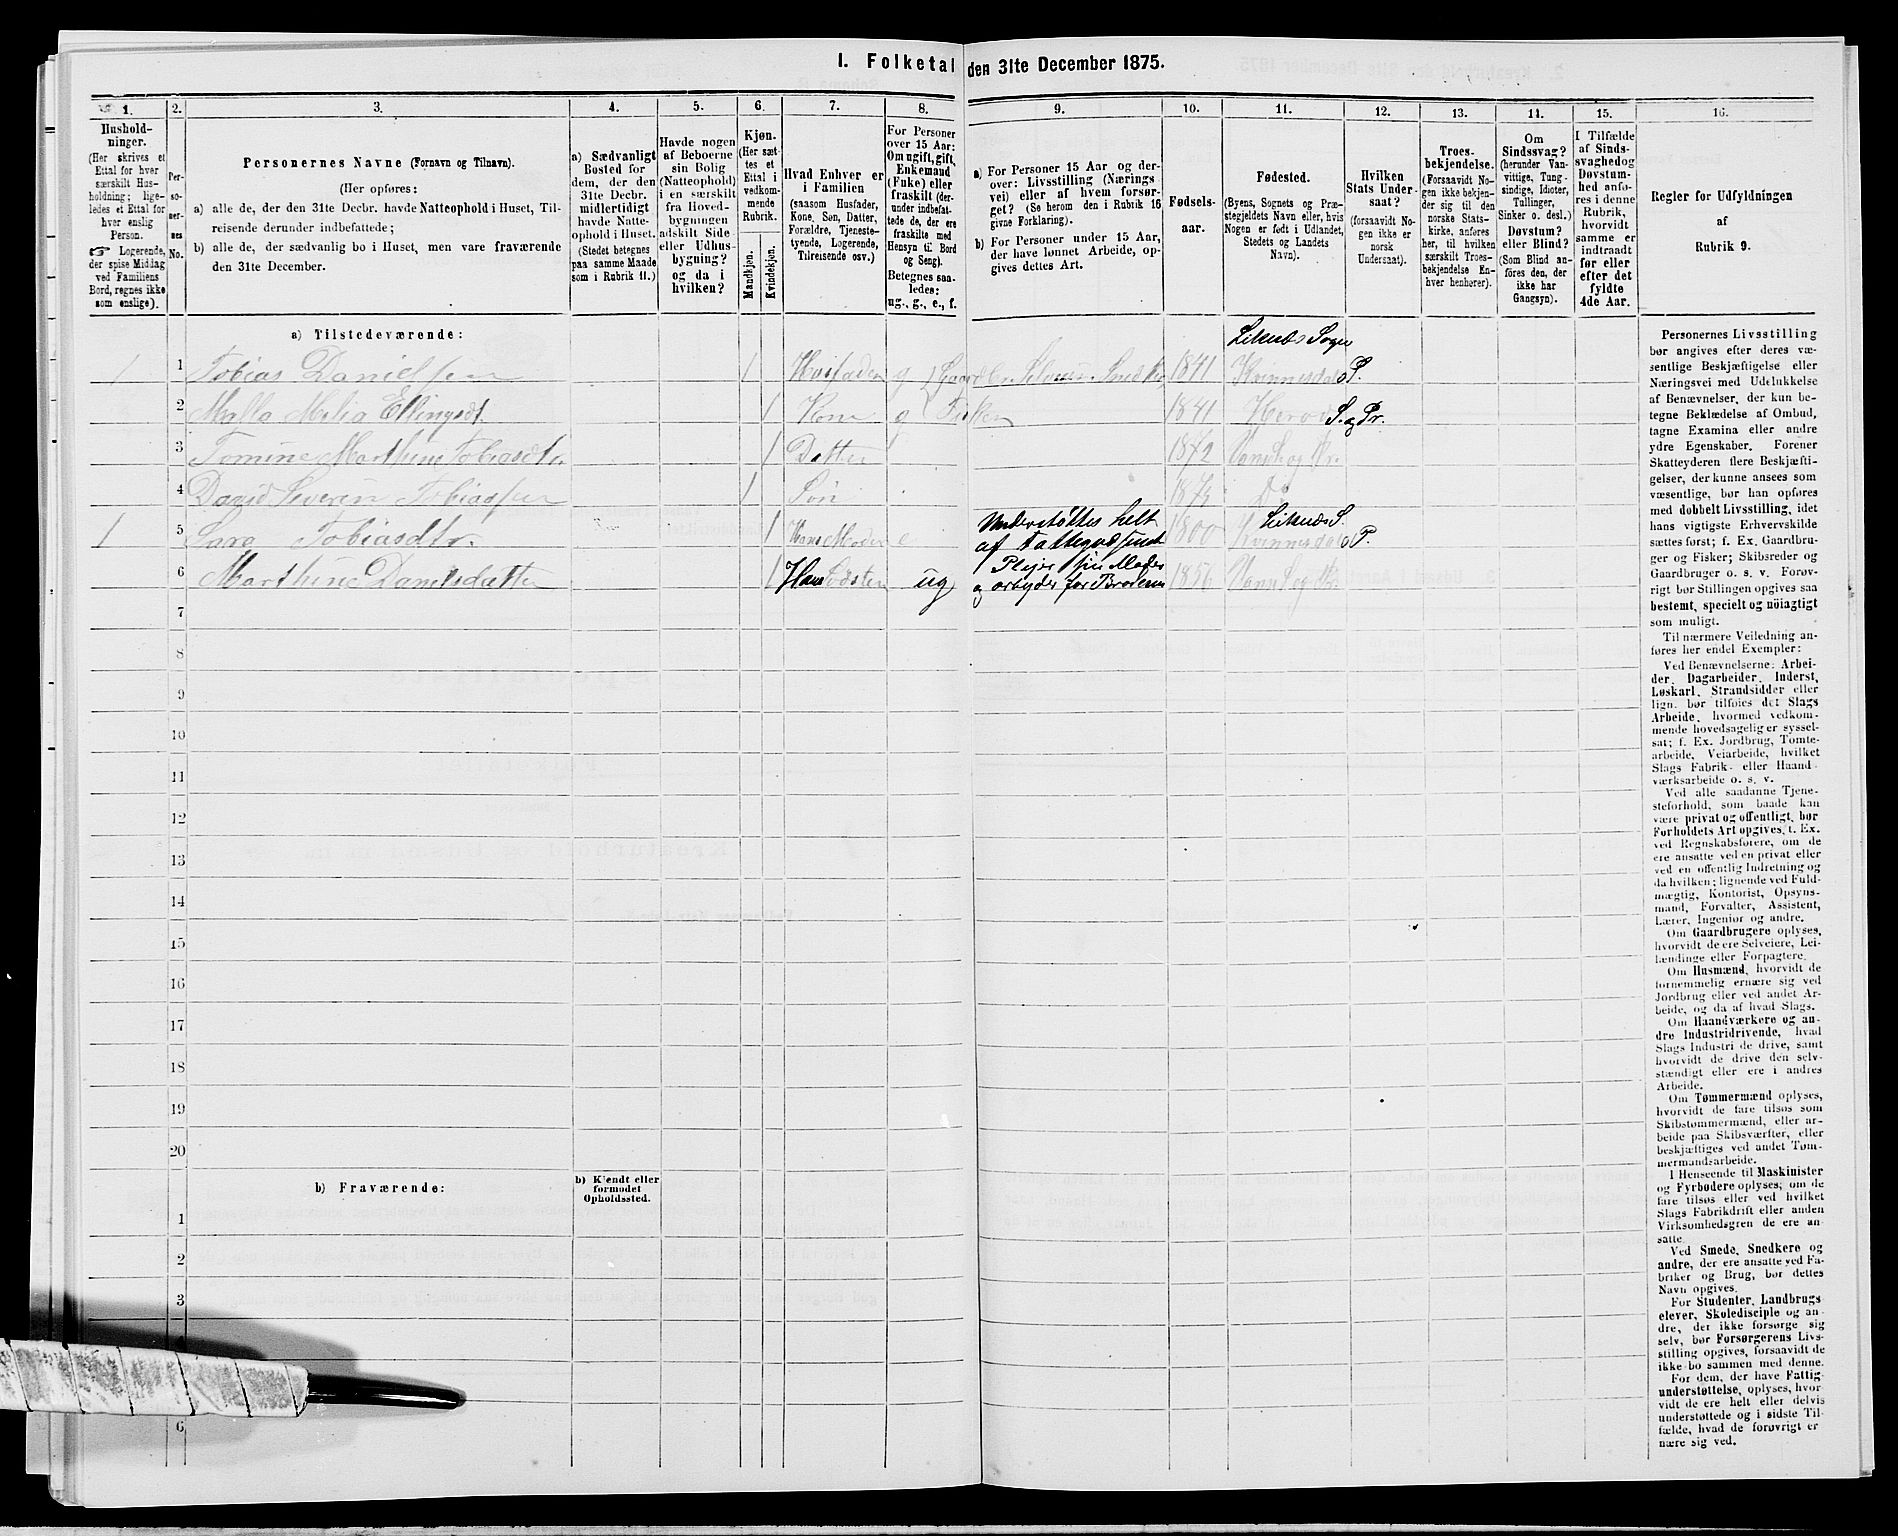 I. Folketal den 31te December 1875.
1. 2. 3. 4. 5. 6. 7. 8. 9. 10. 11. 12. 13. 14. 15. 16.
Hushold-
ninger.
(Her skrives et
Ettal for hver
særskilt Hus-
holdning; lige-
ledes et Ettal for
hver enslig
Person.
☞ Logerende,
der spise Middag
ved Familiens
Bord, regnes ikke
som enslige).
Per-
so-
ner-
nes
No.
Personernes Navne (Fornavn og Tilnavn).
(Her opføres:
a) alle de, der den 31te Decbr. havde Natteophold i Huset, Til-
reisende derunder indbefattede;
b) alle de, der sædvanlig bo i Huset, men vare fraværende
den 31te December.
a) Sædvanligt
Bosted for
dem, der den
31te Decbr.
midlertidigt
havde Natte-
ophold i Huset.
(Stedet betegnes
paa samme Maade
som i Rubrik 11.)
Havde nogen
af Beboerne
sin Bolig
(Natteophold)
i en særskilt
fra Hoved-
bygningen
adskilt Side-
eller Udhus-
bygning?
og da i
hvilken?
Kjøn.
(Her sæt-
tes et
Ettal i
vedkom-
mende
Rubrik.
Mandkjøn.
Kvindekjøn.
Hvad Enhver er
i Familien
(saasom Husfader,
Kone, Søn, Datter,
Forældre, Tjeneste-
tyende, Logerende,
Tilreisende osv.)
For Personer
over 15 Aar:
Om ugift, gift,
Enkemand
(Enke) eller
fraskilt (der-
under indbefat-
tede de, der ere
fraskilte med
Hensyn til Bord
og Seng).
Betegnes saa-
ledes:
ug., g., e., f.
a) For Personer 15 Aar og der-
over: Livsstilling (Nærings-
vei) eller af hvem forsør-
get? (Se herom den i Rubrik 16
givne Forklaring).
b) For Personer under 15 Aar,
der have lønnet Arbeide, op-
gives dettes Art.
Fødsels-
aar.
Fødested.
(Byens, Sognets og Præ-
stegjeldets Navn eller, hvis
Nogen er født i Udlandet,
Stedets og Landets
Navn).
Hvilken
Stats Under-
saat?
(forsaavidt No-
gen ikke er
norsk
Undersaat).
Troes-
bekjendelse.
(Forsaavidt No-
gen ikke bekjen-
der sig til den
norske Stats-
kirke, anføres
her, til hvilken
særskilt Troes-
bekjendelse En-
hver henhører).
Om
Sindssvag?
(herunder Van-
vittige, Tung-
sindige, Idioter,
Tullinger,
Sinker o. desl.)
Døvstum?
eller Blind?
(Som Blind an-
føres den, der
ikke har
Gangsyn).
I Tilfælde
af Sinds-
svaghed og
Døvstum-
hed anfø-
res i denne
Rubrik,
hvorvidt
samme er
indtraadt
før eller
efter det
fyldte
4de Aar.
Regler for Udfyldningen
af
Rubrik 9.
a) Tilstedeværende:
1 1 Tobias Danielsen 1 g 1841 Kvinnesdals P.
2 Malla Melia Ellingsdt. 1 Kone g 1841 S. og Pr.
3 Tomine Marthine Tobiasdtr. 1 Datter 1872
4 David Severin Tobiassen 1 Søn Do
1 5 Sara Tobiasdtr. 1 Kones Moder e Understøttes helt 1800 S.
af Kvinnesdals P.
6 Marthine Danielsdatter 1 Hans Søster ug Plejer sin Moder 1856
og arbyder for Broderen
7
8
9
10
11
12
13
14
15
16
17
18
19
20
b) Fraværende:
b) Kjendt eller
formodet
Opholdssted.
1
2
3
6
Personernes Livsstilling
bør angives efter deres væ-
sentlige Beskjæftigelse eller
Næringsvei med Udelukkelse
af Benævnelser, der kun be-
tegne Beklædelse af Ombud,
tagne Examina eller andre
ydre Egenskaber. Forener
Skatteyderen flere Beskjæfti-
gelser, der kunne ansees som
væsentlige, bør han opføres
med dobbelt Livsstilling, idet
hans vigtigste Erhvervskilde
sættes først; f. Ex. Gaardbru-
ger og Fisker; Skibsreder og
Gaardbruger o. s. v. Forøv-
rigt bør Stillingen opgives saa
bestemt, specielt og nöiagtigt
som muligt.
Til nærmere Veiledning an-
føres her endel Exempler:
Ved Benævnelserne: Arbei-
der, Dagarbeider, Inderst,
Løskarl, Strandsidder eller
lign. bør tilføies det Slags
Arbeide, hvormed vedkom-
mende hovedsagelig er syssel-
sat; f. Ex. Jordbrug, Tomte-
arbeide, Veiarbeide, hvilket
Slags Fabrik- eller Haand-
værksarbeide o. s. v.
Ved alle saadanne Tjene-
steforhold, som baade kan
være privat og offentligt, bør
Forholdets Art opgives, t. Ex.
ved Regnskabsførere, om de
ere ansatte ved en privat eller
ved en offentlig Indretning og
da hvilken; lignende ved Fuld-
mægtig, Kontorist, Opsyns-
mand, Forvalter, Assistent,
Lærer, Ingeniør og andre.
Om Gaardbrugere oplyses,
hvorvidt de ere Selveiere, Lei-
lændinge eller Forpagtere.
Om Husmænd, hvorvidt de
fornemmelig ernære sig ved
Jordbrug eller ved andet Ar-
beide, og da af hvad Slags.
Om Haandværkere og an-
dre Industridrivende, hvad
Slags Industri de drive, samt
hvorvidt de drive den selv-
stændigt eller ere i andres
Arbeide.
Om Tømmermænd oplyses,
hvorvidt de fare tilsøs som
Skibstømmermænd, eller ar-
beide paa Skibsværfter, eller
beskjæftiges ved andet Tøm-
mermandsarbeide.
I Henseende til Maskinister
og Fyrbødere oplyses, om de
fare tilsøs eller ved hvilket
Slags Fabrikdrift eller anden
Virksomhedsgren de ere an-
satte.
Ved Smede, Snedkere og
andre, der ere ansatte ved Fa-
briker og Brug, bør dettes
Navn opgives.
For Studenter, Landbrugs-
elever, Skoledisciple og an-
dre, der ikke forsørge sig
selv, bør Forsørgerens Livs-
stilling opgives, forsaavidt de
ikke bo sammen med denne.
For dem, der have Fattig-
understøttelse, oplyses, hvor-
vidt de ere helt eller delvis
understøttede og i sidste Til-
fælde, hvad de forøvrigt er-
nære sig ved.